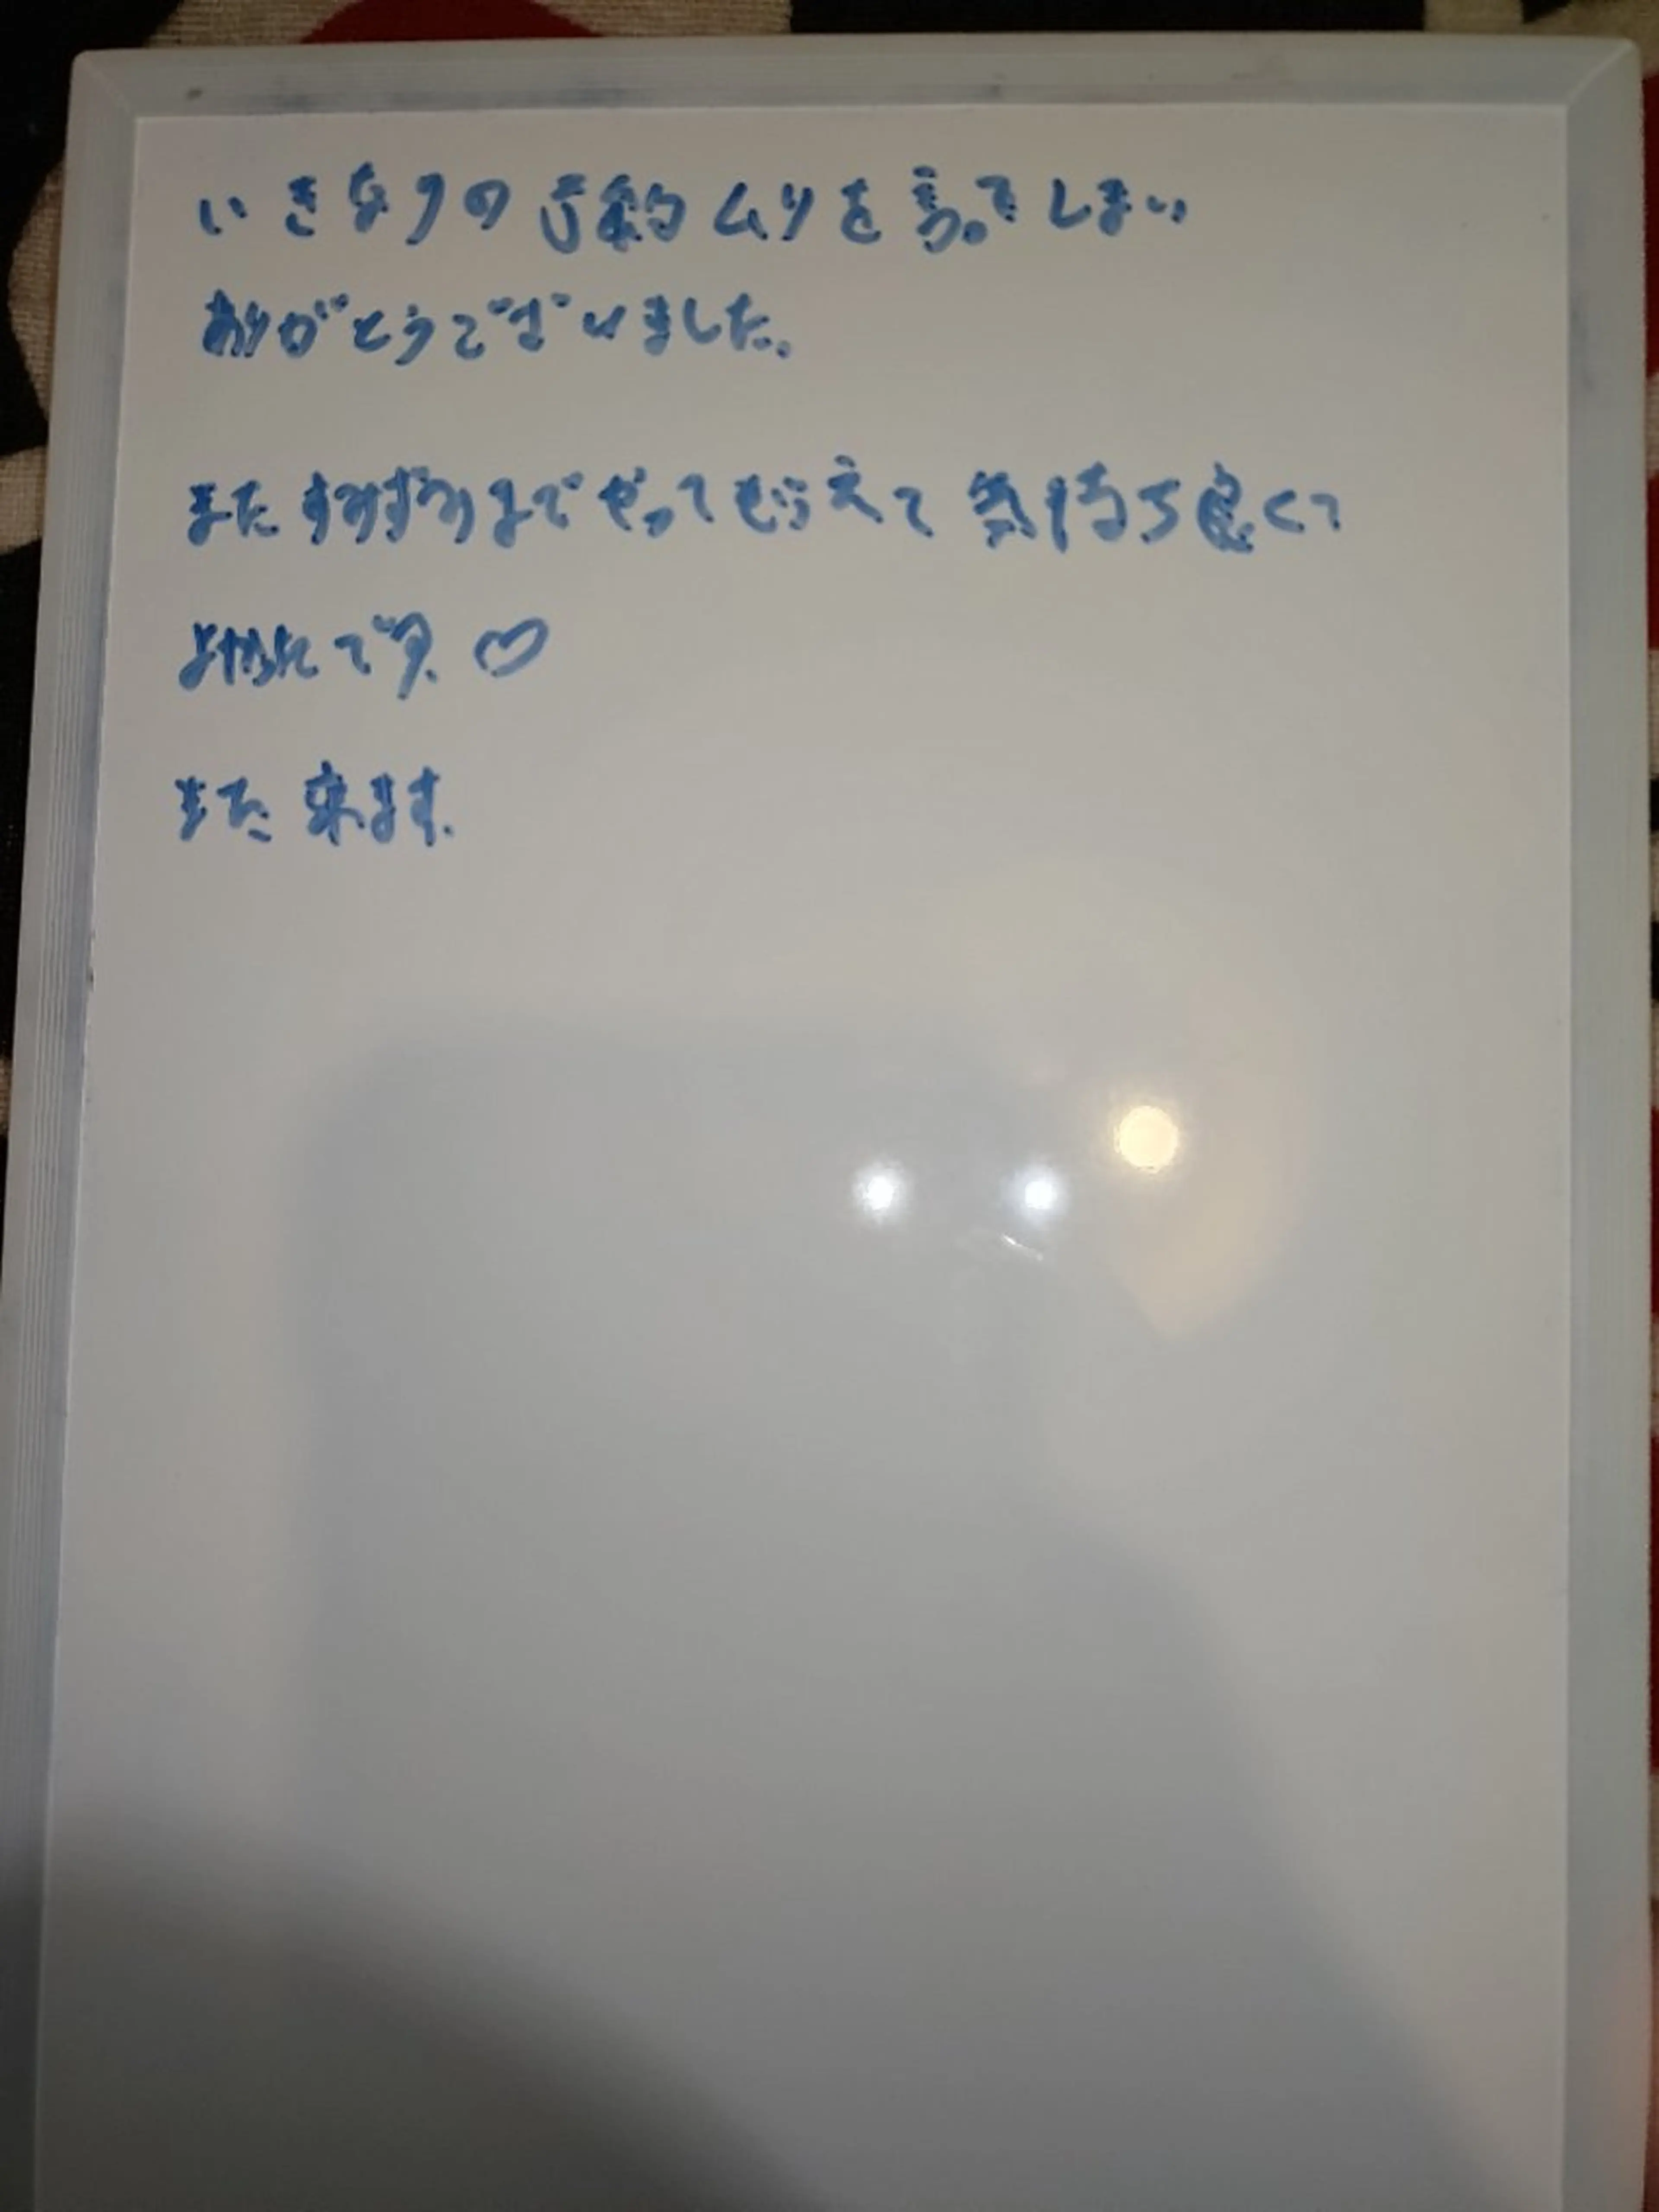 いきなりの予約ムリを言ってしまい
ありがとうございました。
またすみずみまでやってもらえて気持ち良くて
よかったです。♡
また来ます。